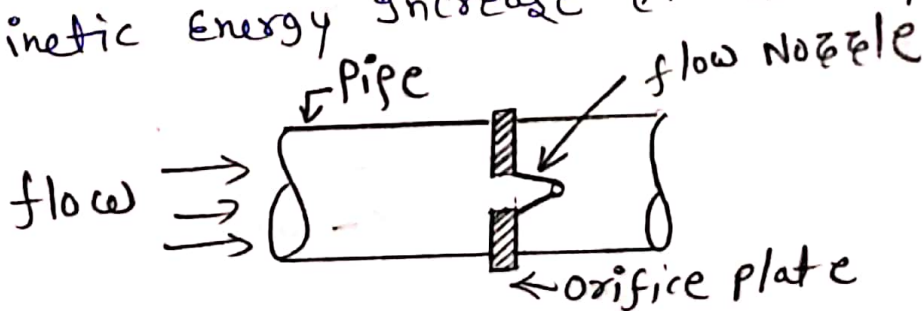 inetic Energy Increase
Pipe
flow Nozzle
flow
orifice plate